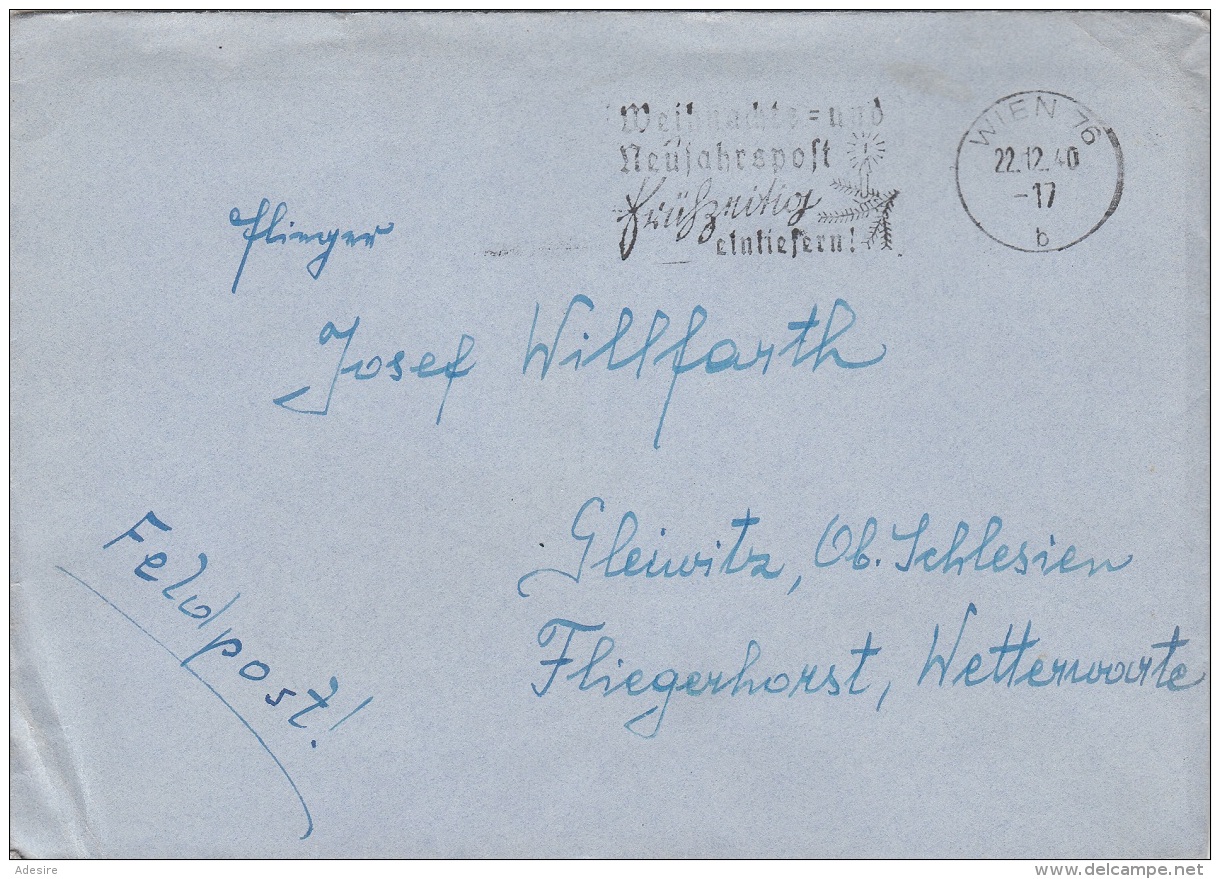 Weihnachts=und
Neujahrspost
frühzeitig
einliefern!
WIEN 76
22.12.40
-17
b
Flieger
Josef Willfarth
Feldpost!
Gleiwitz, Ob. Schlesien
Fliegerhorst, Wetterwarte
Adesire
www.delcampe.net